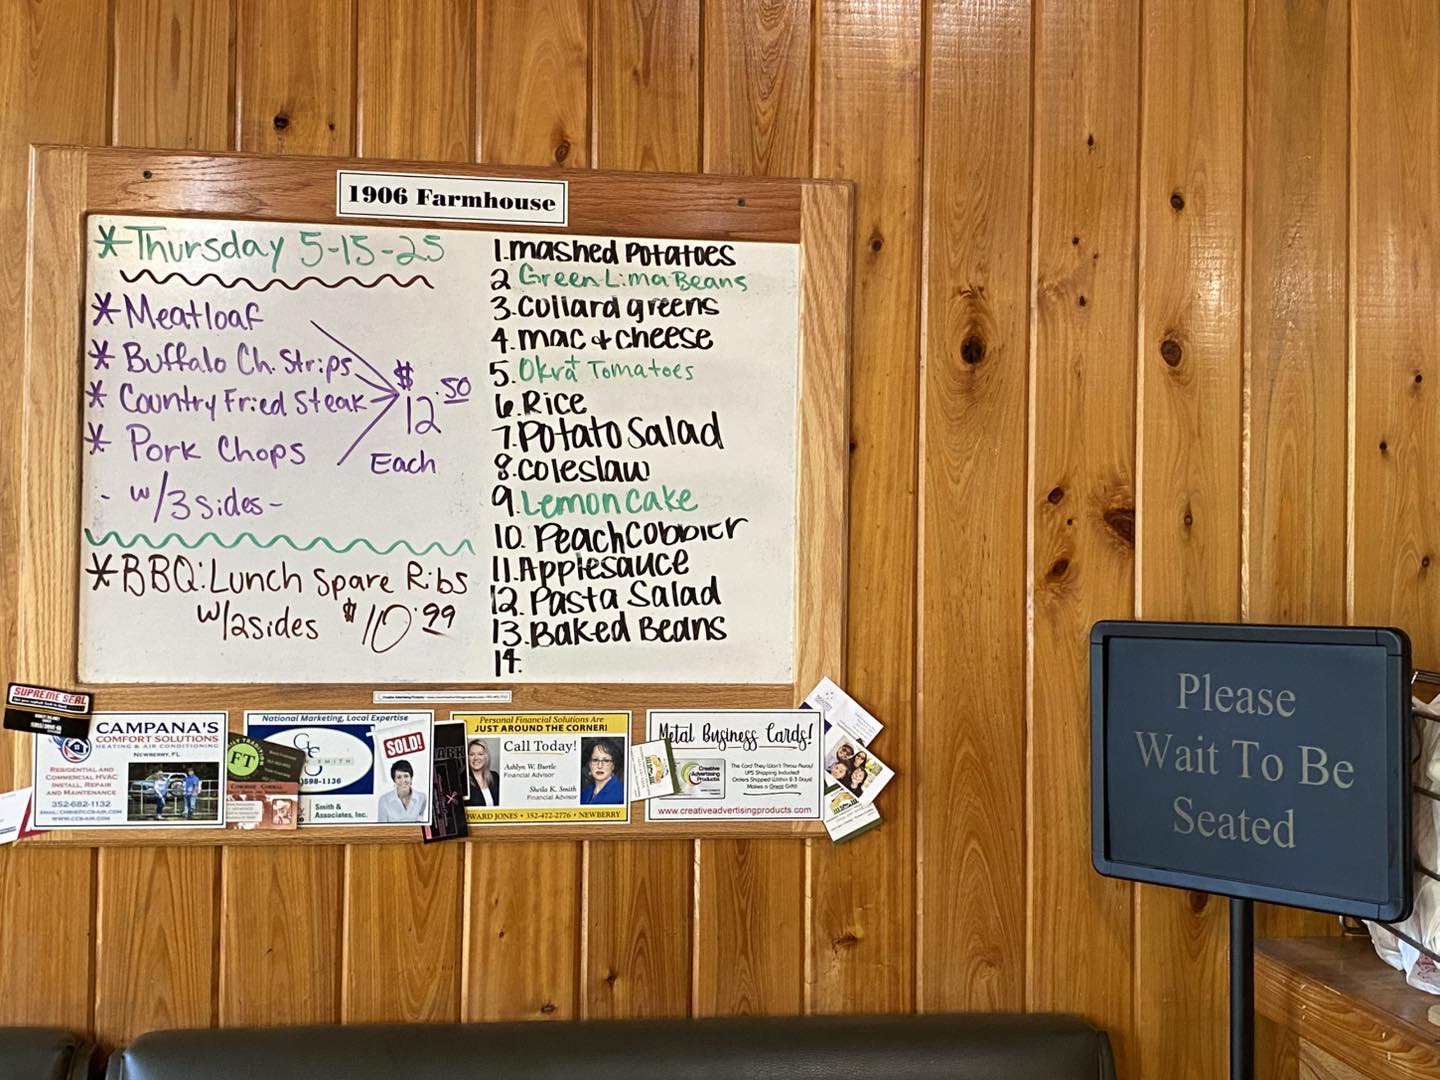 1906 Farmhouse
*Thursday 5-15-25
*Meatloaf
*Buffalo Ch. Strips
*Country Fried Steak
*Pork Chops
$12.50
Each
- w/3 sides-
*BBQ: Lunch Spare Ribs
w/2sides $10.99
1. mashed Potatoes
2 Green Lima Beans
3. Collard greens
4. mac + cheese
5. Okra + Tomatoes
6. Rice
7. Potato Salad
8. coleslaw
9. Lemon Cake
10. Peach Cobbler
11. Applesauce
12. Pasta Salad
13. Baked Beans
14.
SUPREME SEAL
CAMPANA'S
COMFORT SOLUTIONS
HEATING & AIR CONDITIONING
NEWBERRY, FL
RESIDENTIAL AND
COMMERCIAL HVAC
INSTALL, REPAIR
AND MAINTENANCE
352-682-1132
WWW.CCS-AIR.COM
FT
National Marketing, Local Expertise
SOLD!
SMITH
598-1136
Smith &
Associates, Inc.
ARK
Personal Financial Solutions Are
JUST AROUND THE CORNER!
Call Today!
Ashlyn W. Burtle
Financial Advisor
Sheila K. Smith
Financial Advisor
WARD JONES • 352-472-2776 • NEWBERRY
Metal Business Cards!
Creative
Advertising
Products
The Card They Won't Throw Away!
UPS Shipping Included!
Orders Shipped Within 2-3 Days!
Makes a Great Gift!
www.creativeadvertisingproducts.com
Please
Wait To Be
Seated